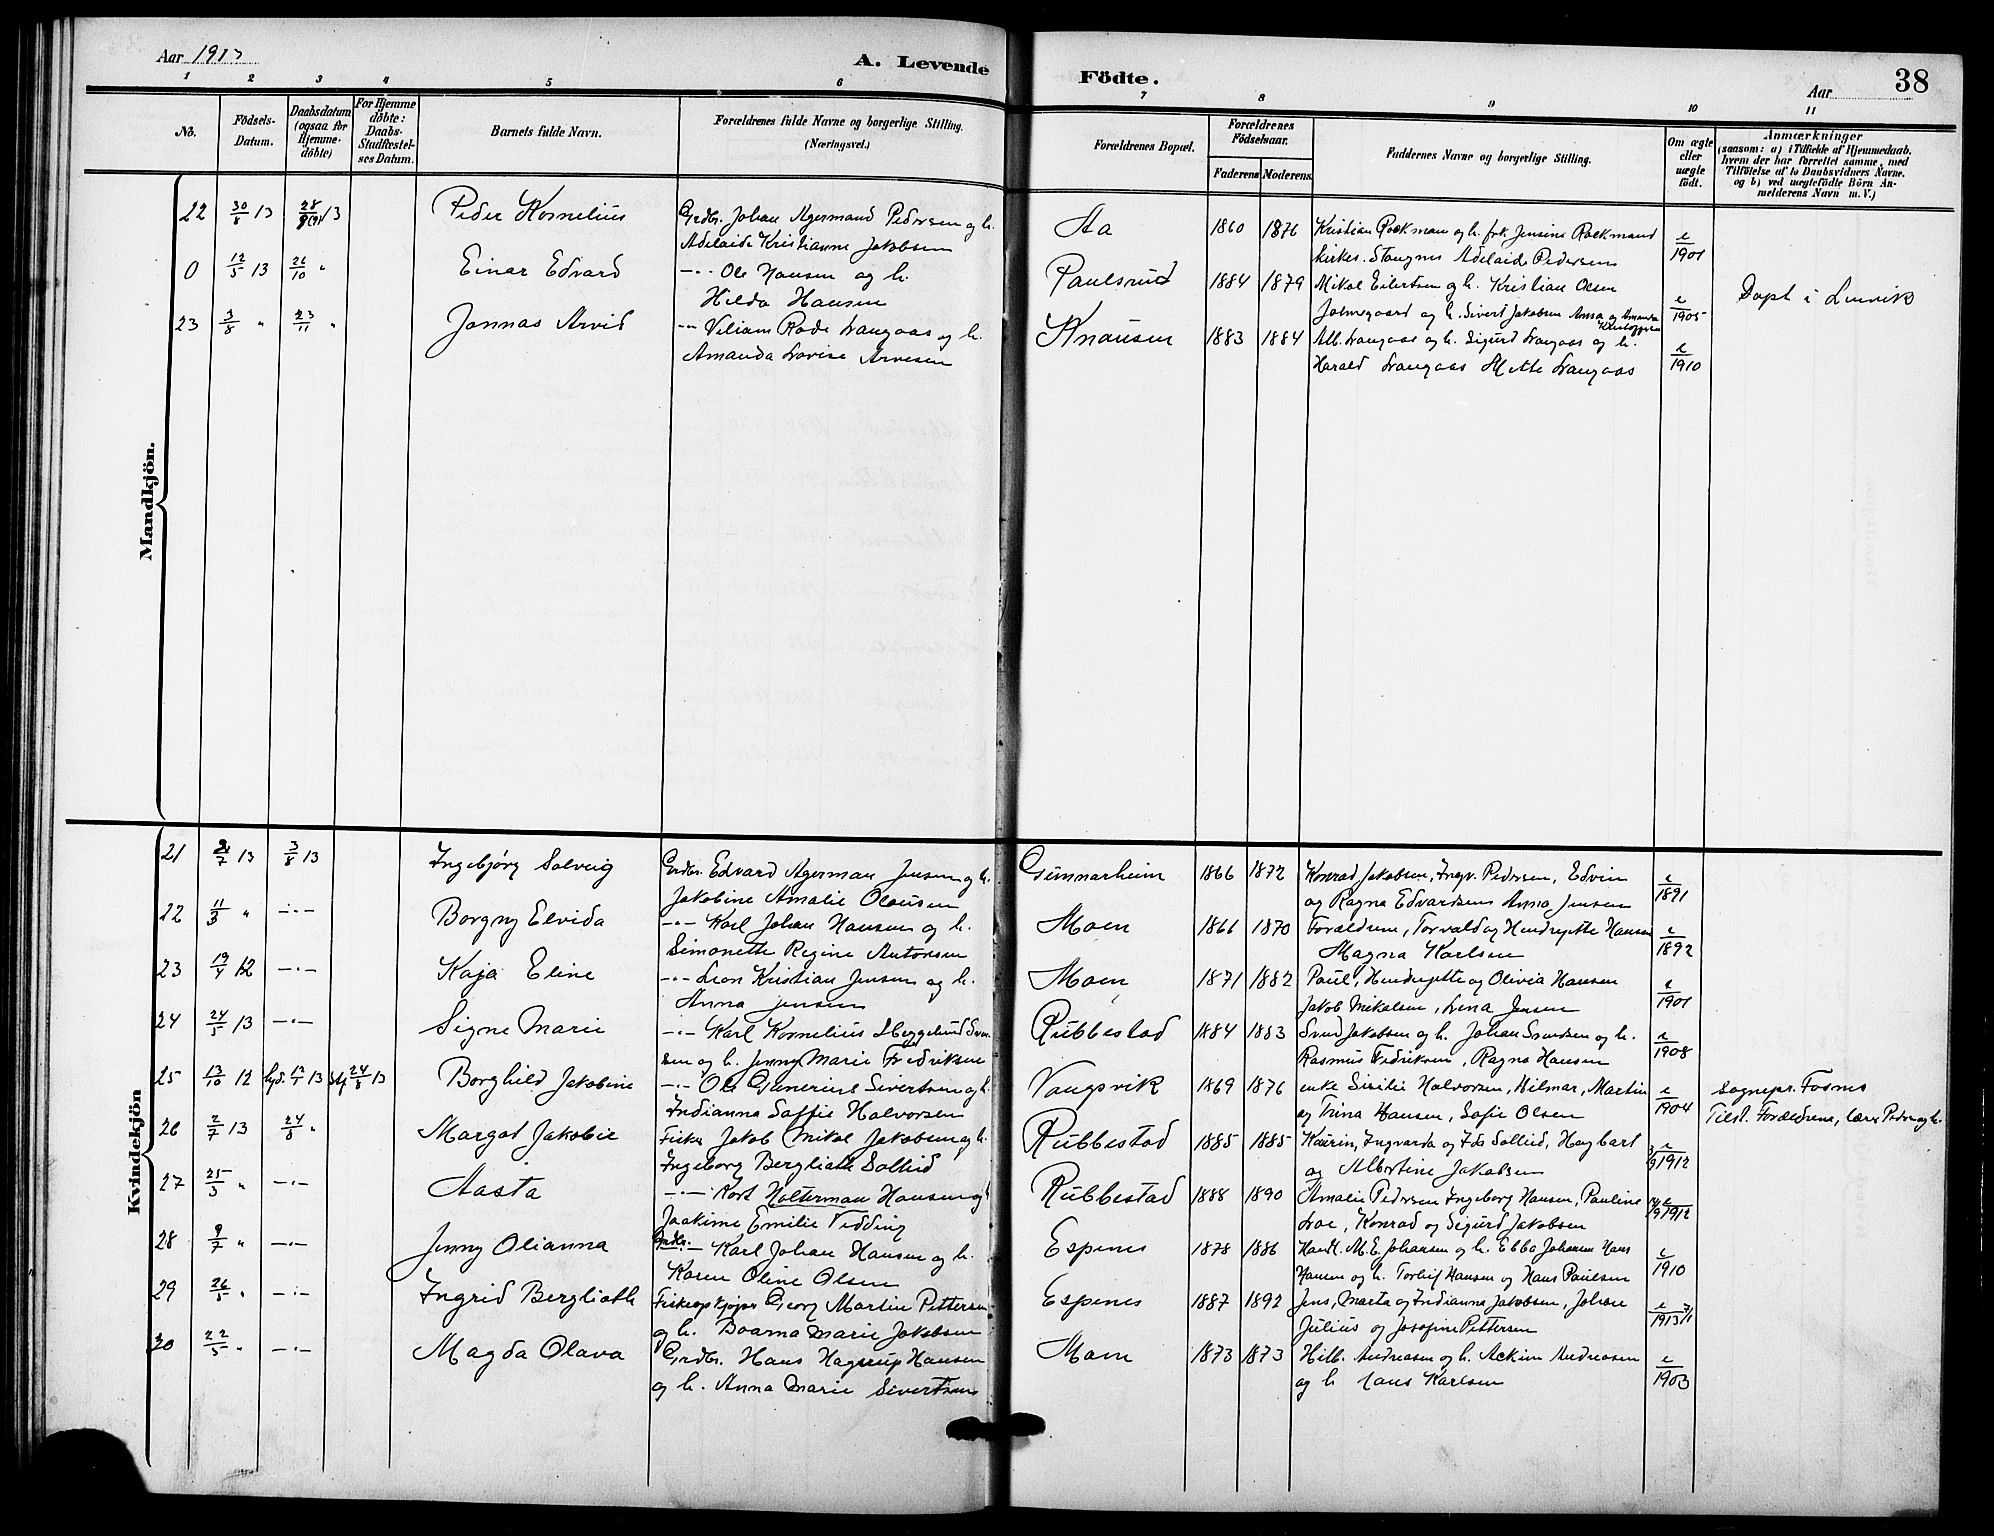 Aar 1913
A. Levende Födte.
38
Aar
1 2 3 4 5 6 7 8 9 10 11
No.
Födsels-Datum.
Daabsdatum (ogsaa for Hjemme-döbte)
For Hjemme döbte: Daabs-Stadfæstel-ses Datum.
Barnets fulde Navn.
Forældrenes fulde Navne og borgerlige Stilling. (Næringsvei.)
Forældrenes Bopæl.
Forældrenes Födselsaar.
Faderens Moderens
Faddernes Navne og borgerlige Stilling.
Om ægte eller uægte födt.
Anmærkninger
(saasom: a) i Tilfælde af Hjemmedaab,
hvem der har forrettet samme, med
Tilföielse af to Daabsvidners Navne.
og b) ved uægtefödte Börn An-
melderens Navn m. V.)
Mandkjön.
22 30/8 13 28/9 13 Peder Kornelius Grdbr. Johan Agermand Pedersen og h. Aa 1860 1876 Kristian Rockman og h. frk Jensine Rockmand e/1901
Adelaide Kristianne Jakobsen kirkes. Stangnes Adelaide Pedersen
0 12/5 13 26/10 " Einar Edvard -"- Ole Hansen og h. Paulsrud 1884 1879 Mikal Eilertsen og h. Kristian Olsen e/1905 Döpt i Lenvik
Hilda Hansen og h. Sivert Jakobsen Anna og Amanda
23 3/8 " 23/11 " Jonnas Arvid -"- Viliam Rode Langaas og h. Knausen 1883 1884 Alb. Langaas og h. Sigurd Langaas og h. e/1910
Amanda Lovise Arnesen Harald Langaas Mette Langaas
Kvindekjön
21 /7 13 3/8 13 Ingebjörg Solveig Grdbr. Edvard Agerman Jensen og h. Gunnarheim 1866 1872 Konrad Jakobsen, Ingv. Pedersen, Edvin e/1891
Jakobine Amalie Olausen og Ragna Edvardsen Anna Jensen
22 11/3 " -"- Borgny Elvida -"- Karl Johan Hansen og h. Moen 1866 1870 Forældrene, Torvald og Hendrijette Hansen e/1892
Simonette Regine Antonsen Magna Karlsen
23 19/4 12 -"- Kaja Eline -"- Leon Kristian Jensen og h. Moen 1871 1882 Paul, Hendrijette og Olivia Hansen e/1901
Anna Jensen Jakob Mikalsen, Lina Jensen
24 24/5 13 -"- Signe Marie -"- Karl Kornelius Skeggelund Sven Rubbestad 1884 1883 Svend Jakobsen og h. Johan Svendsen og h. e/1908
sen og h. Jenny Marie Fredriksen Rasmus Fedriksen, Ragna Hansen
25 13/10 12 hjd. 12/1 13 stf 24/8 13 Borghild Jakobine -"- Ole Gunerius Sivertsen og h. Vangsvik 1869 1876 enke Sisilie Halvorsen, Hilmar, Martin e/1904 Sognepr. Fosnes
Indianna Soffie Halvorsen og Trina Hansen, Sofie Olsen Tilst. Forældrene, lærer Peder og h.
26 2/7 13 24/8 " Margot Jakobie Fisker Jakob Mikal Jakobsen og h. Rubbestad 1885 1885 Kaurin, Ingvarda og Ida Sollied, Hagbart e/1912
Ingeborg Bergliath Sollied og Albertine Jakobsen
27 25/3 " -"- Aasta -"- Kort Holterman Hansen og h Rubbestad 1888 1890 Amalie Pedersen Ingeborg Hansen, Pauline e/1912
Joakime Emilie Vedding Loe, Konrad og Sigurd Jakobsen
28 9/7 " -"- Jenny Olianna Grdbr. Karl Johan Hansen og h. Espenes 1878 1886 Handl. M. E. Johansen og h. Ebba Johansen Hans e/1910
Karen Oline Olsen Hansen og h. Torleif Hansen og Hans Paulsen
29 26/5 " -"- Ingrid Bergliath Fiskeopkjöper Georg Martin Pettersen Espenes 1887 1892 Jens, Marta og Indianna Jakobsen, Johan e/1913
og h. Boarna Marie Jakobsen Julius og Josefine Pettersen
30 22/5 " -"- Magda Olava Grdbr. Hans Hagerup Hansen Moen 1873 1873 Hilb. Andreasen og h. Ackim Andreasen e/1903
og h. Anna Marie Sivertsen og h Hans Karlsen